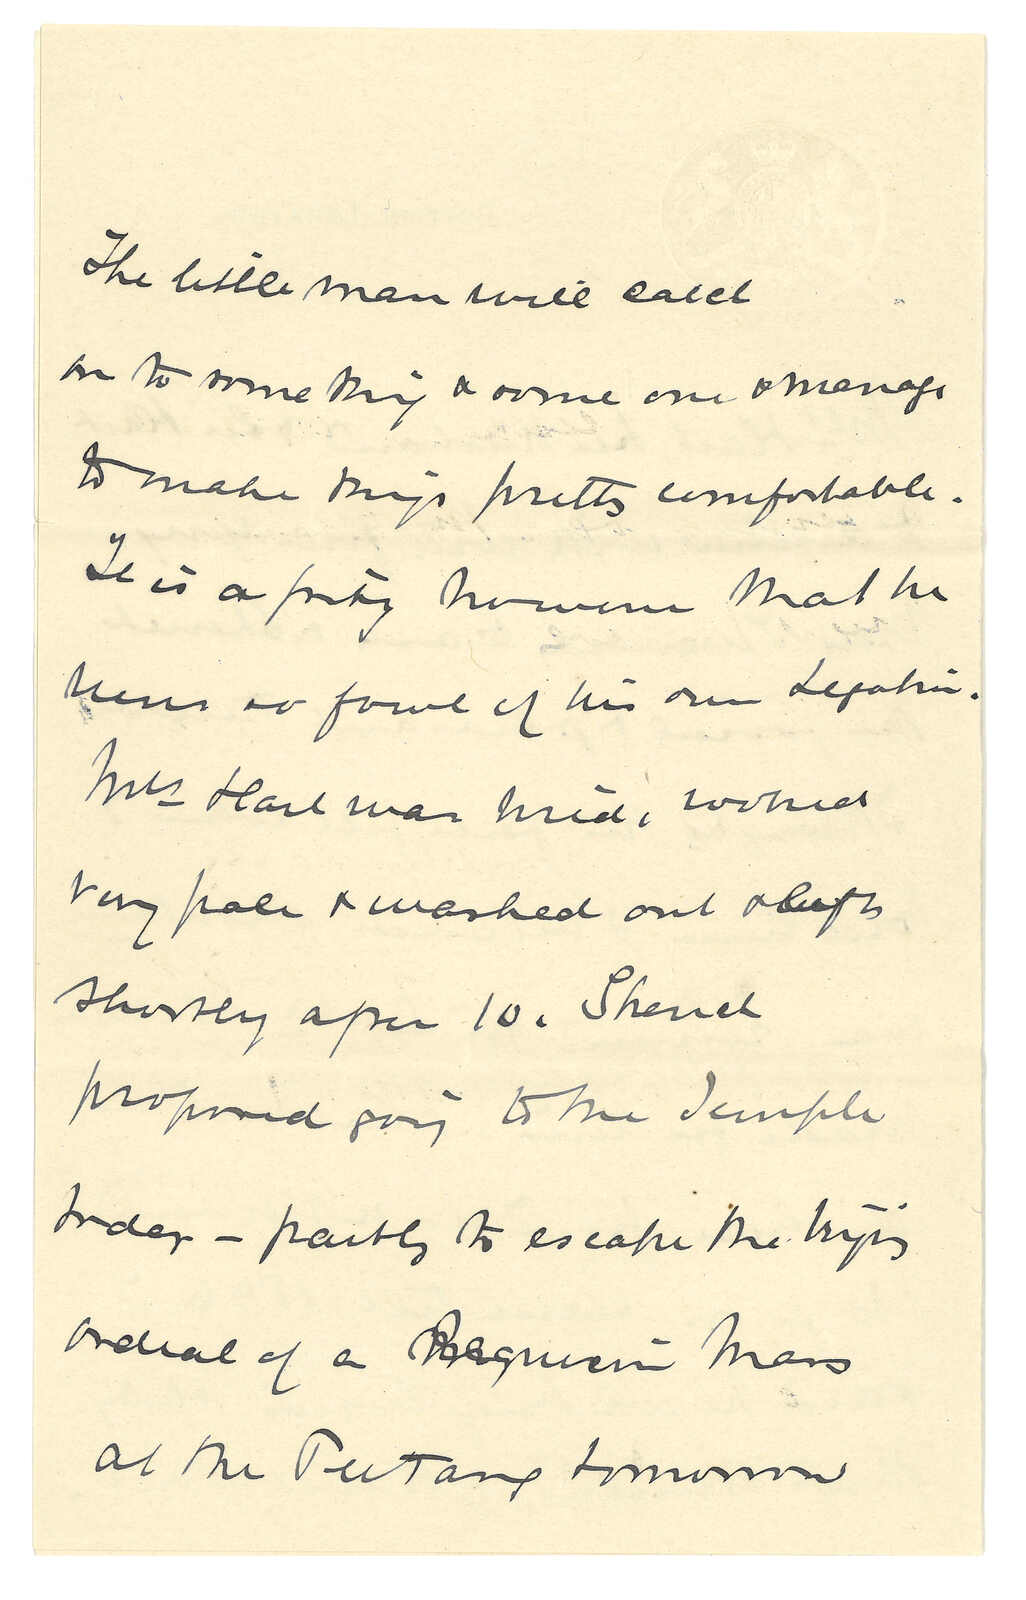 The little man will catch
on to something & some one & manage
to make things pretty comfortable.
It is a pity however that he
never so foul of his own Legation.
Mrs Hart was tired, looked
very pale & washed out & left
shortly after 10. Sherid
proposed going to the Temple
today – partly to escape the trying
ordeal of a Requiem Mass
at the PeiTang tomorrow